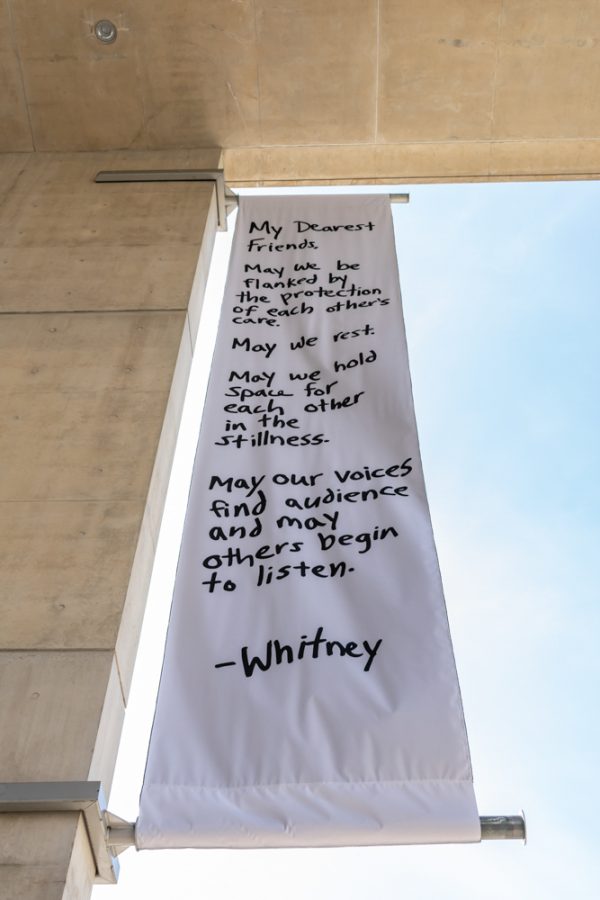 My Dearest
Friends,
May we be
flanked by
the protection
of each other's
care.
May we rest.
May we hold
space for
each other
in the
stillness.
May our voices
find audience
and may
others begin
to listen.
-Whitney